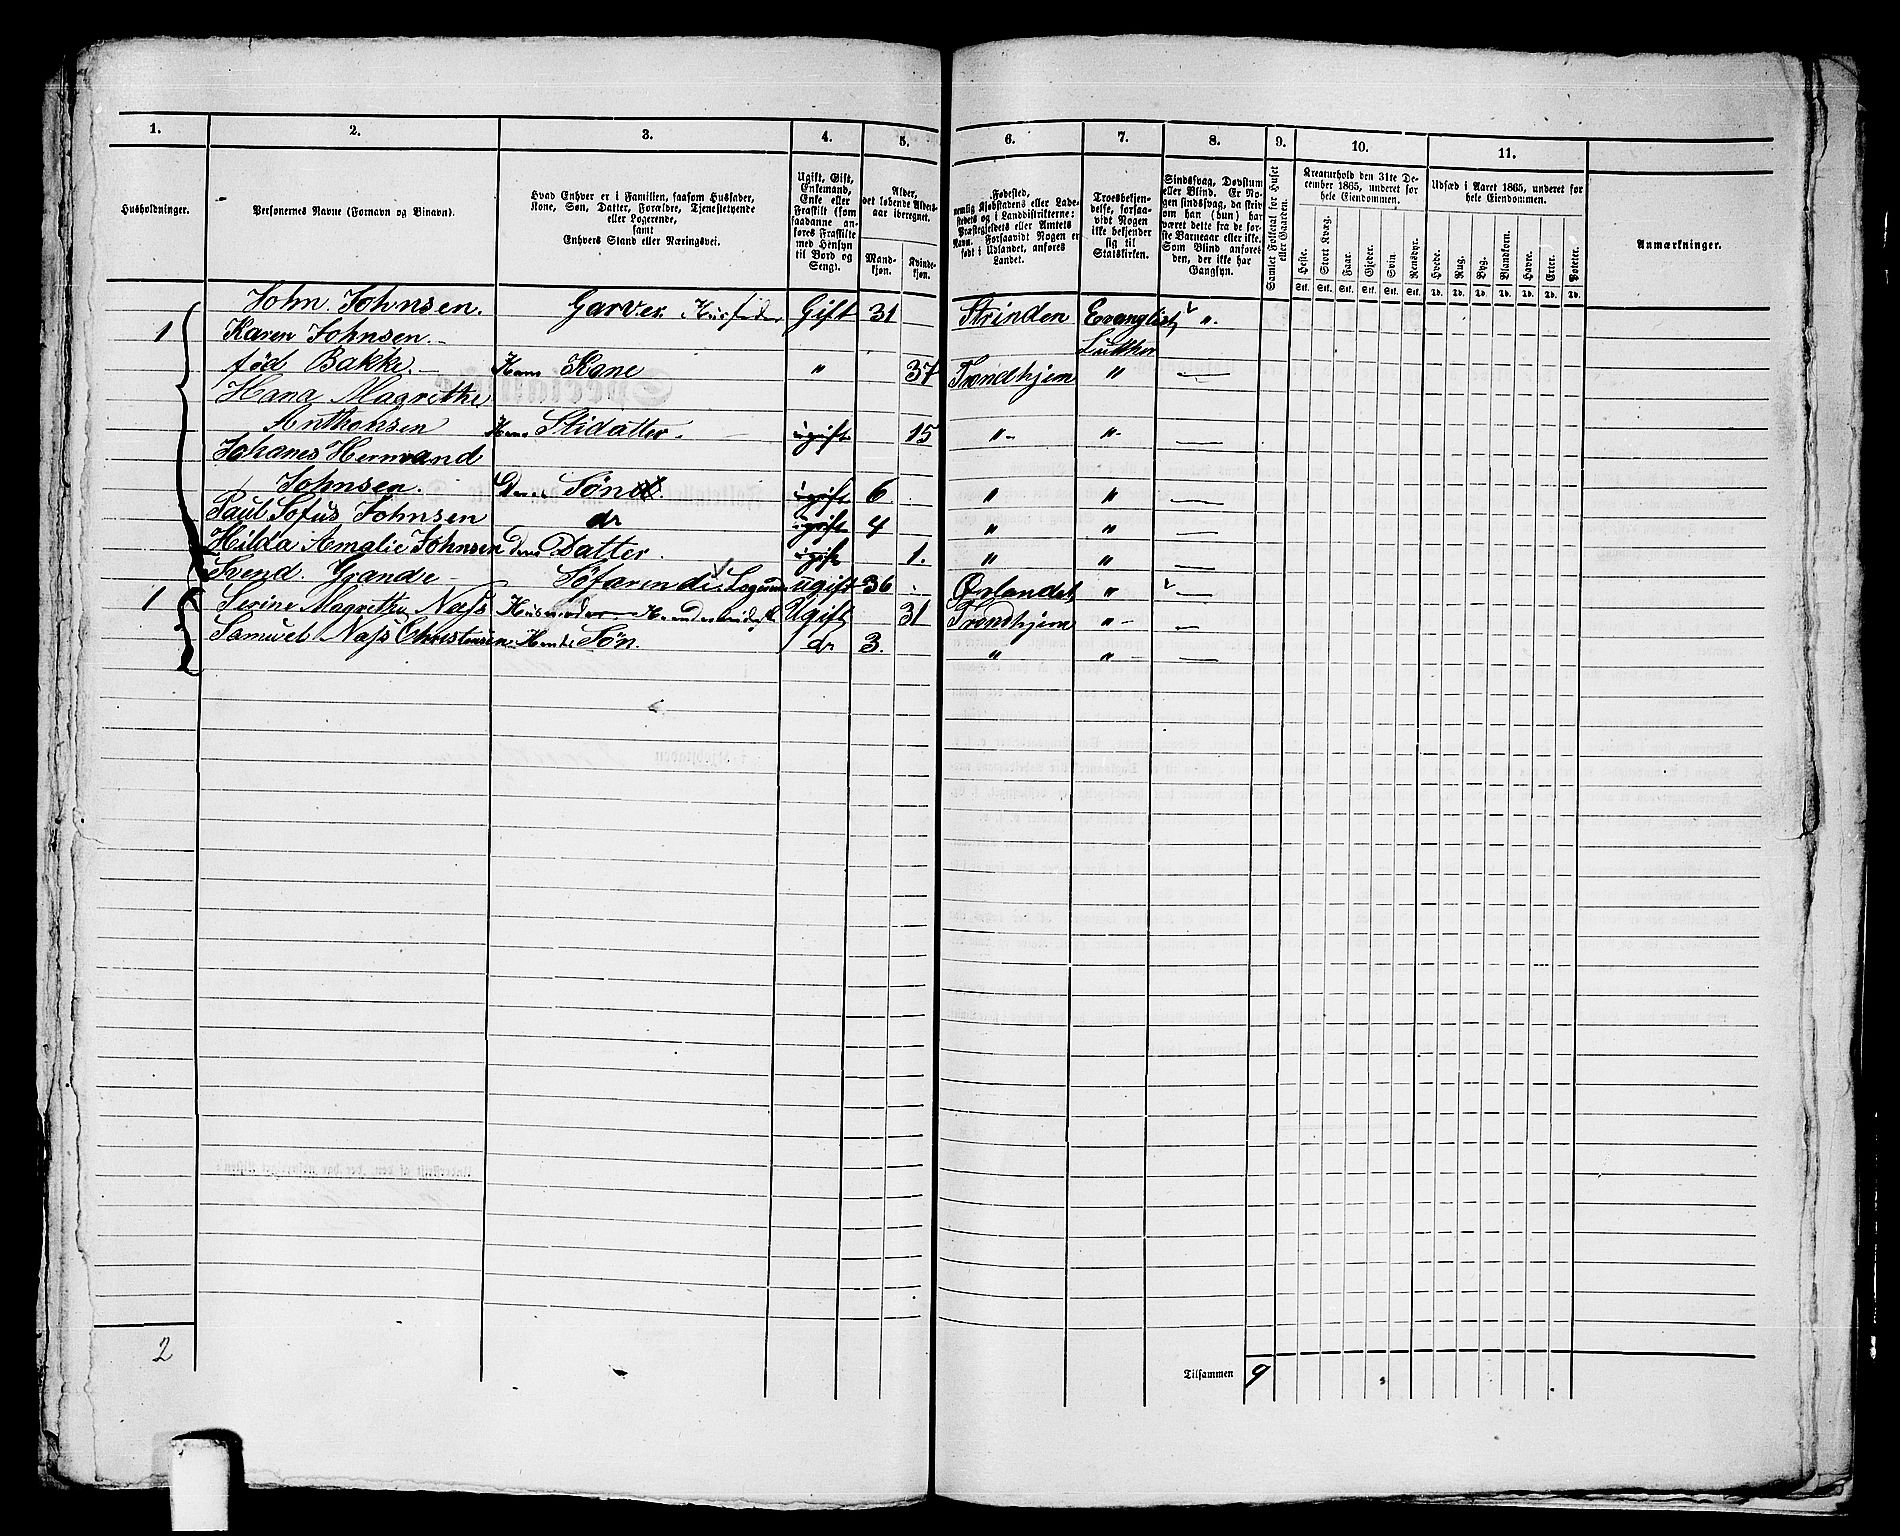 1. 2. 3. 4. 5. 6. 7. 8. 9. 10. 11.
Husholdninger.
Personernes Navne (Fornavn og Binavn).
Hvad Enhver er i Familien, saasom Husfader,
Kone, Søn, Datter, Forældre, Tjenestetyende
eller Logerende,
samt
Enhvers Stand eller Næringsvei.
Ugift, Gift,
Enkemand,
Enke eller
Fraskilt (som
saadanne an-
føres Fraskilte
med Hensyn
til Bord og
Seng).
Alder,
det løbende Alders-
aar iberegnet.
Mand-
kjøn.
Kvinde-
kjøn.
Fødested,
nemlig Kjøbstadens eller Lade-
stedets og i Landdistrikterne:
Præstegjeldets eller Amtets
Navn. Forsaavidt Nogen er
født i Udlandet, anføres
Landet.
Troesbekjen-
delse, forsaa-
vidt Nogen
ikke bekjender
sig til
Statskirken.
Sindssvag, Døvstum
eller Blind. Er No-
gen sindssvag, da skriv
om han (hun) har
været dette fra de før-
ste Barneaar eller ikke.
Som Blind anføres
den, der ikke har
Gangsyn.
Samlet Folketal for Huset
eller Gaarden.
Kreaturhold den 31te De-
cember 1865, underet for
hele Eiendommen.
Heste. Stort Kvæg. Faar. Gjeder. Svin. Rensdyr.
Stk. Stk. Stk. Stk. Stk. Stk.
Udsæd i Aaret 1865, underet for
hele Eiendommen.
Hvede. Rug. Byg. Blandkorn. Havre. Erter. Poteter.
Td. Td. Td. Td. Td. Td. Td.
Anmærkninger.
John Johnsen. Garver Husfader Gift 31 Strinden Evanglist „
1 Karen Johnsen Luther
fød Bakke. Hans Kone „ 37 Trondhjem „ —
Hana Magrethe
Anthonsen Hans Stidatter. ugift 15 „ „ —
Johanes Hermand
Johnsen. Deres Søn ugift 6 „ „ —
Paul Sofus Johnsen do ugift 4 „ „ —
Hilda Amalie Johnsen Deres Datter. ugift 1. „ „ —
Svend Grande Søfarende Logerende ugift 36 Ørlandet „ —
1 Serine Magrethe Næss Ugift 31 Trondhjem „ —
Samuel Næss Christensen Hendes Søn. do 3. „ „ —
2
Tilsammen 9